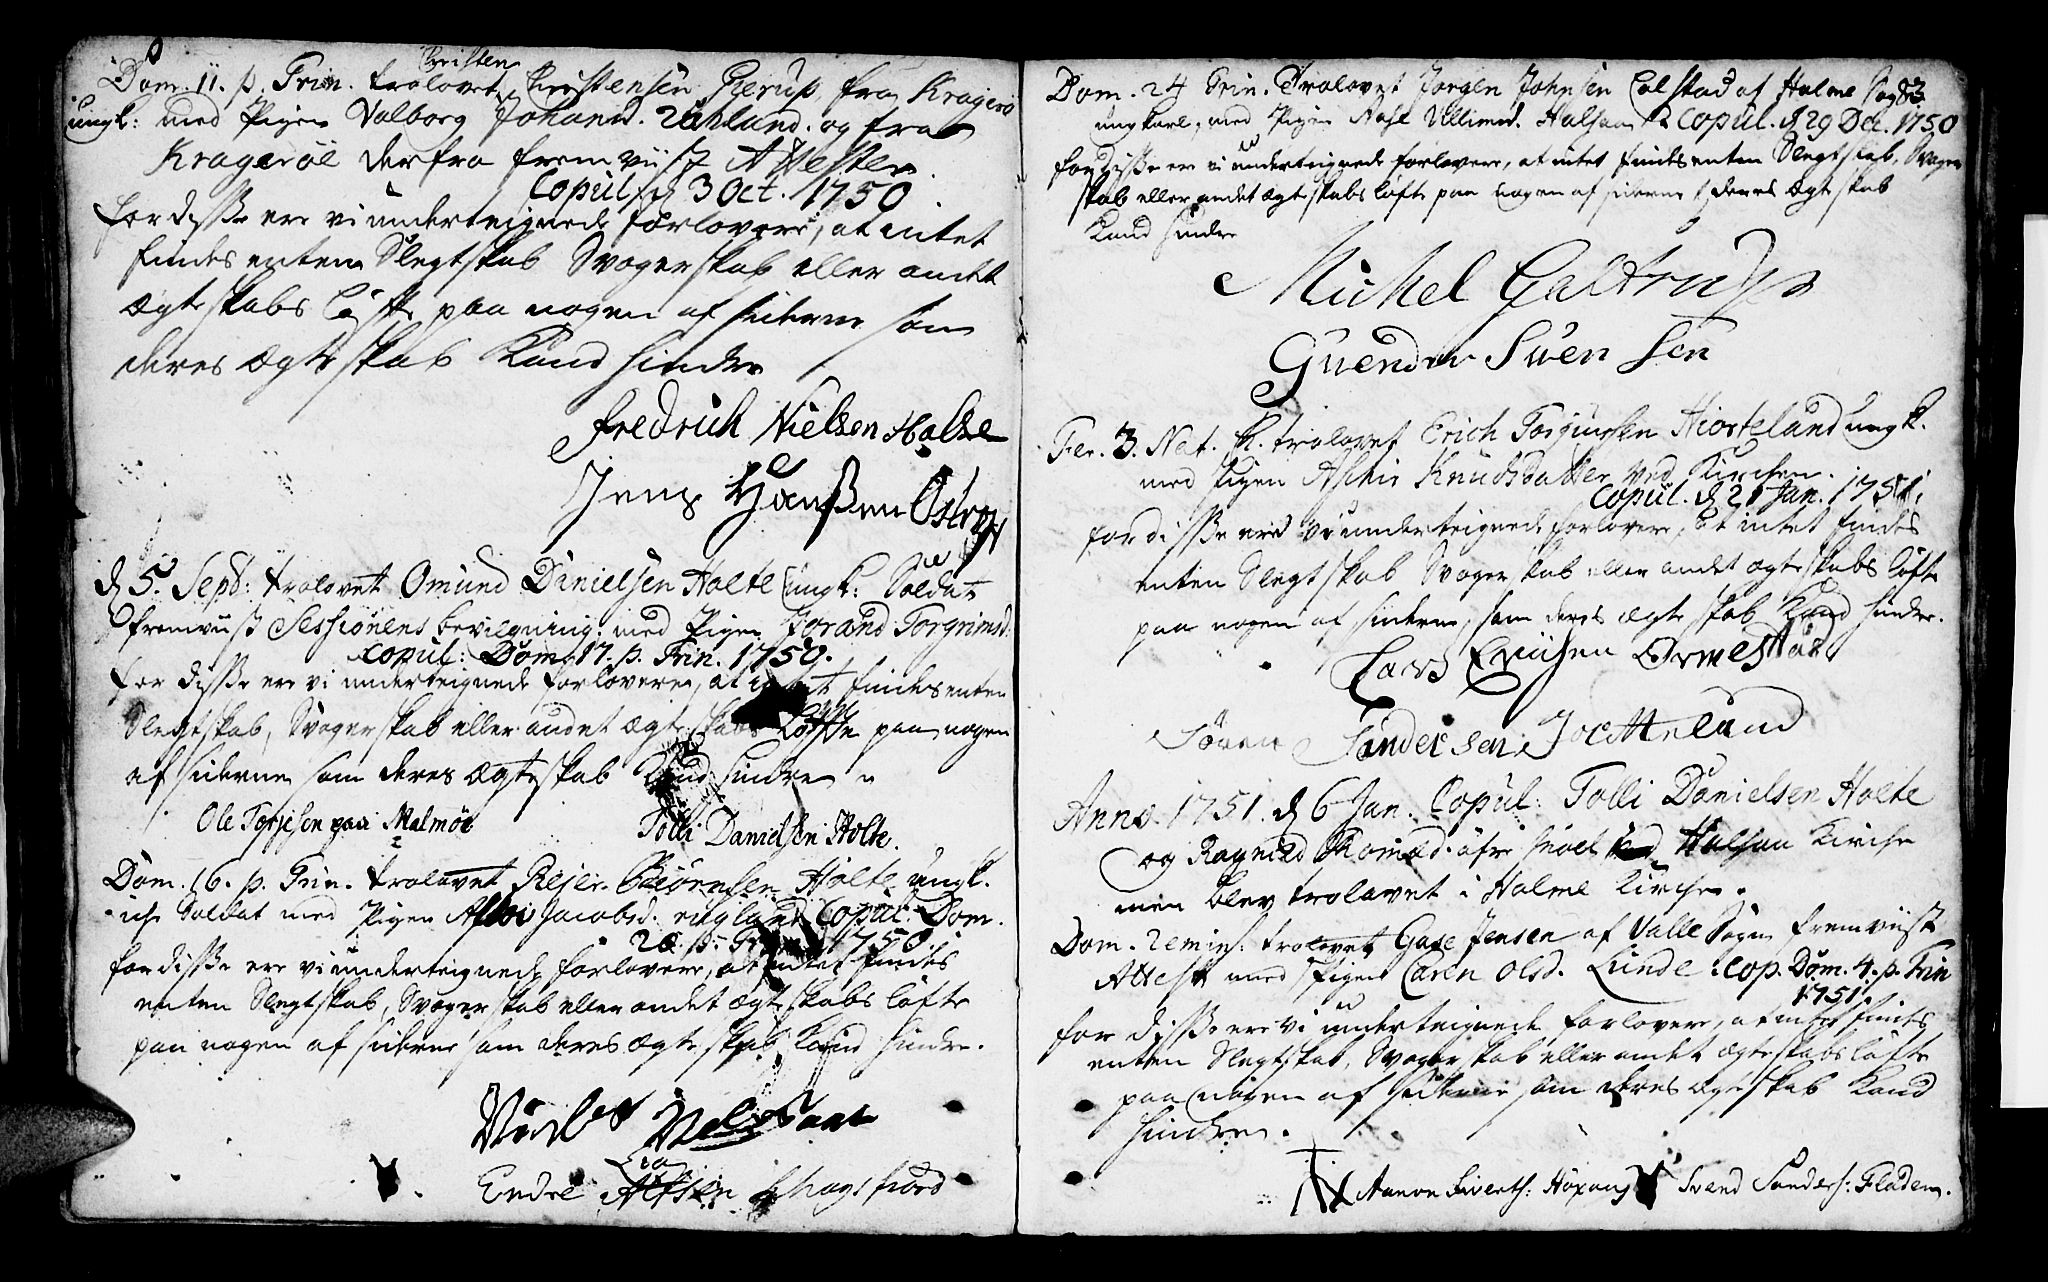 Christen
Dom. 11. p. Trin. trolovet Christensen Pierup, fra Kragerö
ungk: med Pigen Valborg Johansd. og fra
Krageröe derfra fremviist Attester.
Copul. d 3 Oct. 1750.
for disse ere vi underteignede forlovere, at intet
findes enten Slegtskab Svogerskab eller andet
Ægteskabs Löfte paa nogen af siderne som
deres Ægteskab Kand hindre
Fredrich Nielsen Halse
Jens Hanssen
d 5. Sept: trolovet Omund Danielsen Holte ungk: Soldat
fremviist Sessionens bevilgning: med Pigen Jorand Torgrimsd:
Copul: Dom. 17. p. Trin. 1750.
for disse ere vi underteignede forlovere, at intet findes enten
Slegtskab, Svogerskab eller andet ægteskabs Löfte paa nogen
af siderne som deres Ægteskab Kand hindre
Ole Torjeson paa Malmöe
Tolli Danielsen Holte.
Dom. 16. p. Trin. trolovet Rejer Biörnsen Holte ungk.
Soldat med Pigen Jacobsd. Copul. Dom.
20. p. Trin. 1750.
for disse ere vi underteignede forlovere, at intet findes
enten Slegtskab, Svogerskab eller andet ægteskabs löfte
paa nogen af siderne som deres ægteskab Kand hindre.
Endre
Dom. 24 Trin. Trolovet Jörgen Johnsen Colstad af Halme Sogn 83.
ungkarl, med Pigen Aase Villumsd. Halsaa Copul. d 29 Dec. 1750
for disse ere vi underteignede forlovere, at intet findes enten Slegtskab, Svoger
skab eller andet ægteskabs löfte paa nogen af siderne deres Ægteskab
Kand hindre
Michel Galtrup
Guender Suensen
Fer. 3. Nat. Chr. trolovet Erich Torgiersen Hiorteland ungk.
med Pigen Knudsdatter ved Kirchen.
Copul. d 21 Jan. 1751.
for disse ere vi underteignede forlovere, at intet findes
enten Slegtskab Svogerskab eller andet ægteskabs löfte
paa nogen af siderne, som deres ægteskab Kand hindre.
Lars Erichsen Ormestad
Sören Sandersen
Anno. 1751. d 6 Jan. Copul: Tolli Danielsen Holte
og Ragnild Tromod. Halsaa Kirche
men blev trolovet i Halme Kirche.
Dom. Remin: trolovet Gase Jensen af Valle Sogn fremviist
Attest med Pigen Caren Olsd. Lunde. Cop. Dom. 4. p. Trin
1751.
for disse ere vi underteignede forlovere, at intet findes
enten Slegtskab, Svogerskab eller andet ægteskabs löfte
paa nogen af siderne som deres ægteskab Kand
hindre.
Aanon Siverts: Svend Sanders: Fladem.